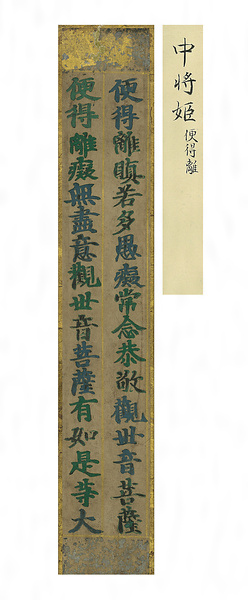 中将姫 便得離
便得離瞋若多愚癡常念恭敬觀世音菩薩
便得離癡無盡意觀世音菩薩有如是等大